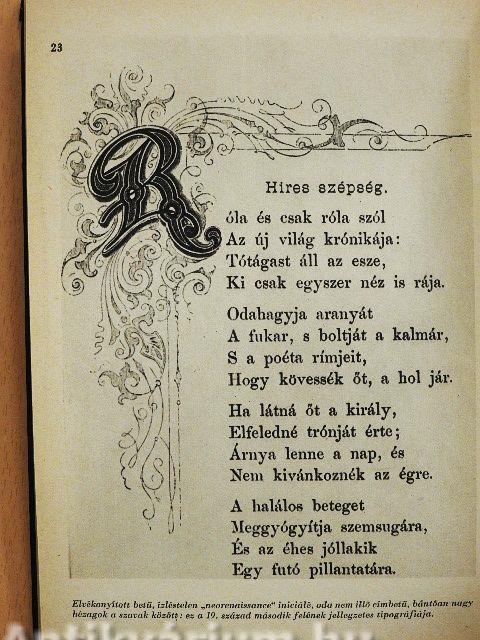 23
Hires szépség.
Róla és csak róla szól
Az új világ krónikája:
Tótágast áll az esze,
Ki csak egyszer néz is rája.
Odahagyja aranyát
A fukar, s boltját a kalmár,
S a poéta rímjeit,
Hogy kövessék őt, a hol jár.
Ha látná őt a király,
Elfeledné trónját érte;
Árnya lenne a nap, és
Nem kivánkoznék az égre.
A halálos beteget
Meggyógyítja szemsugára,
És az éhes jóllakik
Egy futó pillantatára.
Elvékonyított betű, ízléstelen „neorenaissance" iniciálé, oda nem illő címbetű, bántóan nagy
hézagok a szavak között: ez a 19. század második felének jellegzetes tipográfiája.